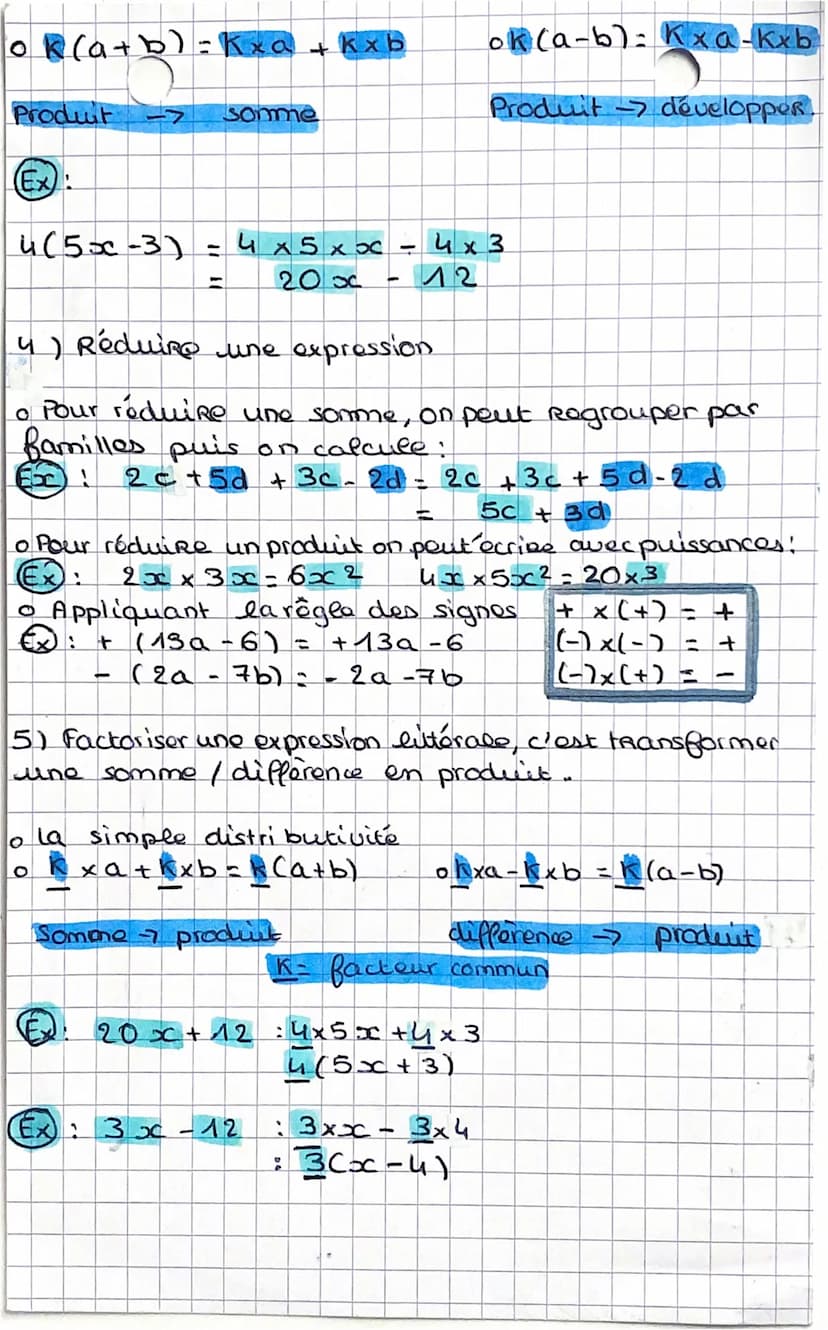 o k(a+b) = k×a + k×b o k(a-b) = k×a - k×b
Produit -> somme Produit -> développer.
Ex :
4(5x-3) = 4 × 5 × x - 4 × 3
= 20x - 12
4) Réduire une expression
o Pour réduire une somme, on peut regrouper par
familles puis on calcule :
Ex : 2c + 5d + 3c - 2d = 2c + 3c + 5d - 2d
= 5c + 3d
o Pour réduire un produit on peut écrire avec puissances :
Ex : 2x × 3x = 6x2 4x × 5x2 = 20x3
o Appliquant la règea des signes + ×(+) = +
Ex : + (13a - 6) = +13a - 6 (-)×(-) = +
- (2a - 7b) = - 2a - 7b (-)×(+) = -
5) Factoriser une expression littérale, c'est transformer
une somme / différence en produit..
o la simple distributivité
o k × a + k × b = k(a+b) o k×a - k×b = k(a-b)
Somme -> produit différence -> produit
K = facteur commun
Ex : 20x + 12 : 4×5x + 4×3
4(5x + 3)
Ex : 3x - 12 : 3×x - 3×4
: 3(x - 4)